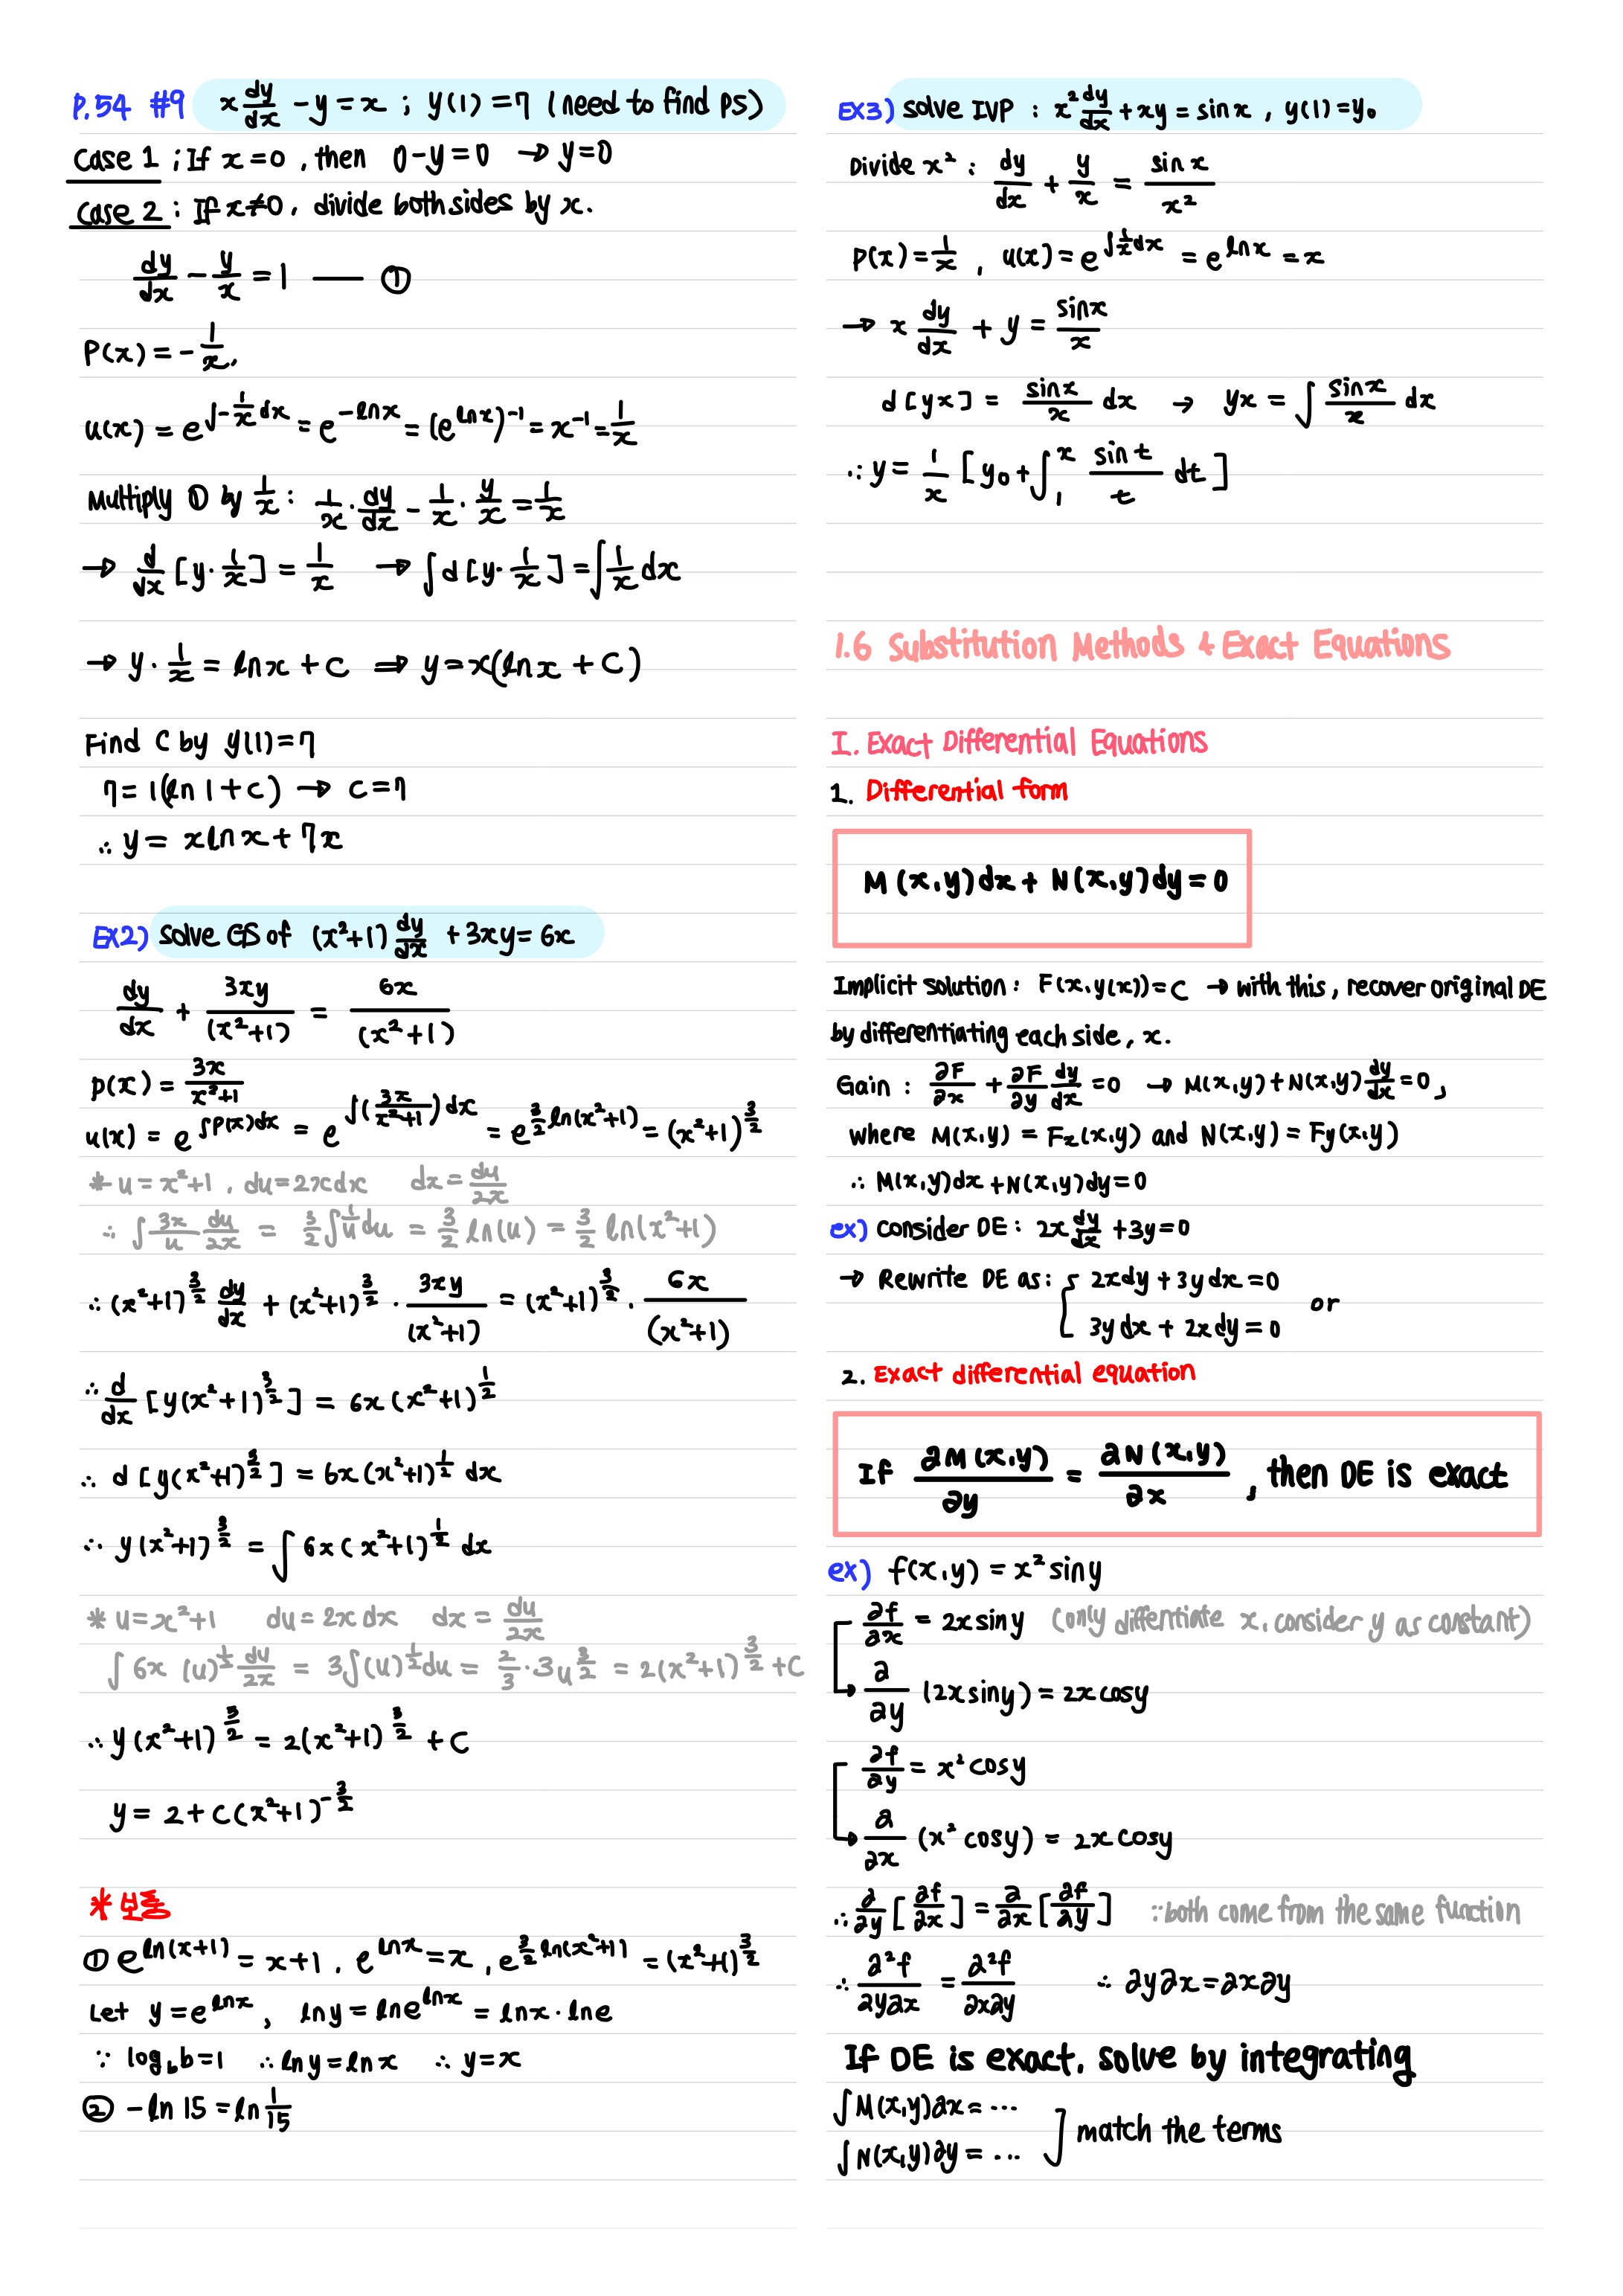 P.54 #9 x dy/dx - y = x ; y(1) = 7 (need to find PS)
Case 1 ; If x = 0, then 0 - y = 0 → y = 0
Case 2 : If x ≠ 0, divide both sides by x.
dy/dx - y/x = 1 —— ①
P(x) = - 1/x.
u(x) = e^(∫ - 1/x dx) = e^(-ln x) = (e^(ln x))^(-1) = x^(-1) = 1/x
Multiply ① by 1/x : 1/x · dy/dx - 1/x · y/x = 1/x
→ d/dx [y · 1/x] = 1/x → ∫ d [y · 1/x] = ∫ 1/x dx
→ y · 1/x = ln x + C ⇒ y = x(ln x + C)
Find C by y(1) = 7
7 = 1(ln 1 + C) → C = 7
∴ y = x ln x + 7x
EX2) Solve GS of (x²+1) dy/dx + 3xy = 6x
dy/dx + 3xy/(x²+1) = 6x/(x²+1)
p(x) = 3x/x²+1
u(x) = e^(∫P(x)dx) = e^(∫(3x/x²+1)dx) = e^(3/2 ln(x²+1)) = (x²+1)^(3/2)
* u = x²+1 , du = 2x dx dx = du/2x
∴ ∫ 3x/u du/2x = 3/2 ∫ 1/u du = 3/2 ln(u) = 3/2 ln(x²+1)
∴ (x²+1)^(3/2) dy/dx + (x²+1)^(3/2) · 3xy/(x²+1) = (x²+1)^(3/2) · 6x/(x²+1)
∴ d/dx [y(x²+1)^(3/2)] = 6x (x²+1)^(1/2)
∴ d [y(x²+1)^(3/2)] = 6x (x²+1)^(1/2) dx
∴ y(x²+1)^(3/2) = ∫ 6x (x²+1)^(1/2) dx
* u = x²+1 du = 2x dx dx = du/2x
∫ 6x (u)^(1/2) du/2x = 3∫(u)^(1/2) du = 2/3 · 3u^(3/2) = 2(x²+1)^(3/2) + C
∴ y(x²+1)^(3/2) = 2(x²+1)^(3/2) + C
y = 2 + C(x²+1)^(-3/2)
* 보충
① e^(ln(x+1)) = x+1 , e^(ln x) = x , e^(3/2 ln(x²+1)) = (x²+1)^(3/2)
Let y = e^(ln x) , ln y = ln e^(ln x) = ln x · ln e
∵ log_b b = 1 ∴ ln y = ln x ∴ y = x
② - ln 15 = ln 1/15
EX3) Solve IVP : x² dy/dx + xy = sin x , y(1) = y₀
Divide x² : dy/dx + y/x = sin x/x²
P(x) = 1/x , u(x) = e^(∫ 1/x dx) = e^(ln x) = x
→ x dy/dx + y = sin x/x
d [yx] = sin x/x dx → yx = ∫ sin x/x dx
∴ y = 1/x [y₀ + ∫₁ˣ sin t/t dt]
1.6 Substitution Methods & Exact Equations
I. Exact Differential Equations
1. Differential form
M(x,y)dx + N(x,y)dy = 0
Implicit solution : F(x, y(x)) = C → with this, recover original DE
by differentiating each side, x.
Gain : ∂F/∂x + ∂F/∂y dy/dx = 0 → M(x,y) + N(x,y) dy/dx = 0 ,
where M(x,y) = Fx(x,y) and N(x,y) = Fy(x,y)
∴ M(x,y)dx + N(x,y)dy = 0
ex) Consider DE : 2x dy/dx + 3y = 0
→ Rewrite DE as : { 2xdy + 3ydx = 0 or
3ydx + 2xdy = 0
2. Exact differential equation
If ∂M(x,y)/∂y = ∂N(x,y)/∂x , then DE is exact
ex) f(x,y) = x² sin y
∂f/∂x = 2x sin y (only differentiate x, consider y as constant)
∂/∂y (2x sin y) = 2x cos y
∂f/∂y = x² cos y
∂/∂x (x² cos y) = 2x cos y
∴ ∂/∂y [∂f/∂x] = ∂/∂x [∂f/∂y] ∵ both come from the same function
∴ ∂²f/∂y∂x = ∂²f/∂x∂y ∴ ∂y∂x = ∂x∂y
If DE is exact, solve by integrating
∫ M(x,y)∂x = ...
∫ N(x,y)∂y = ... match the terms